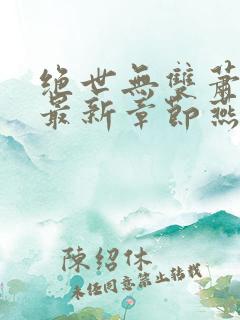 絕世無雙蕭
最新章節燕
陳紹休
未經同意禁止轉載